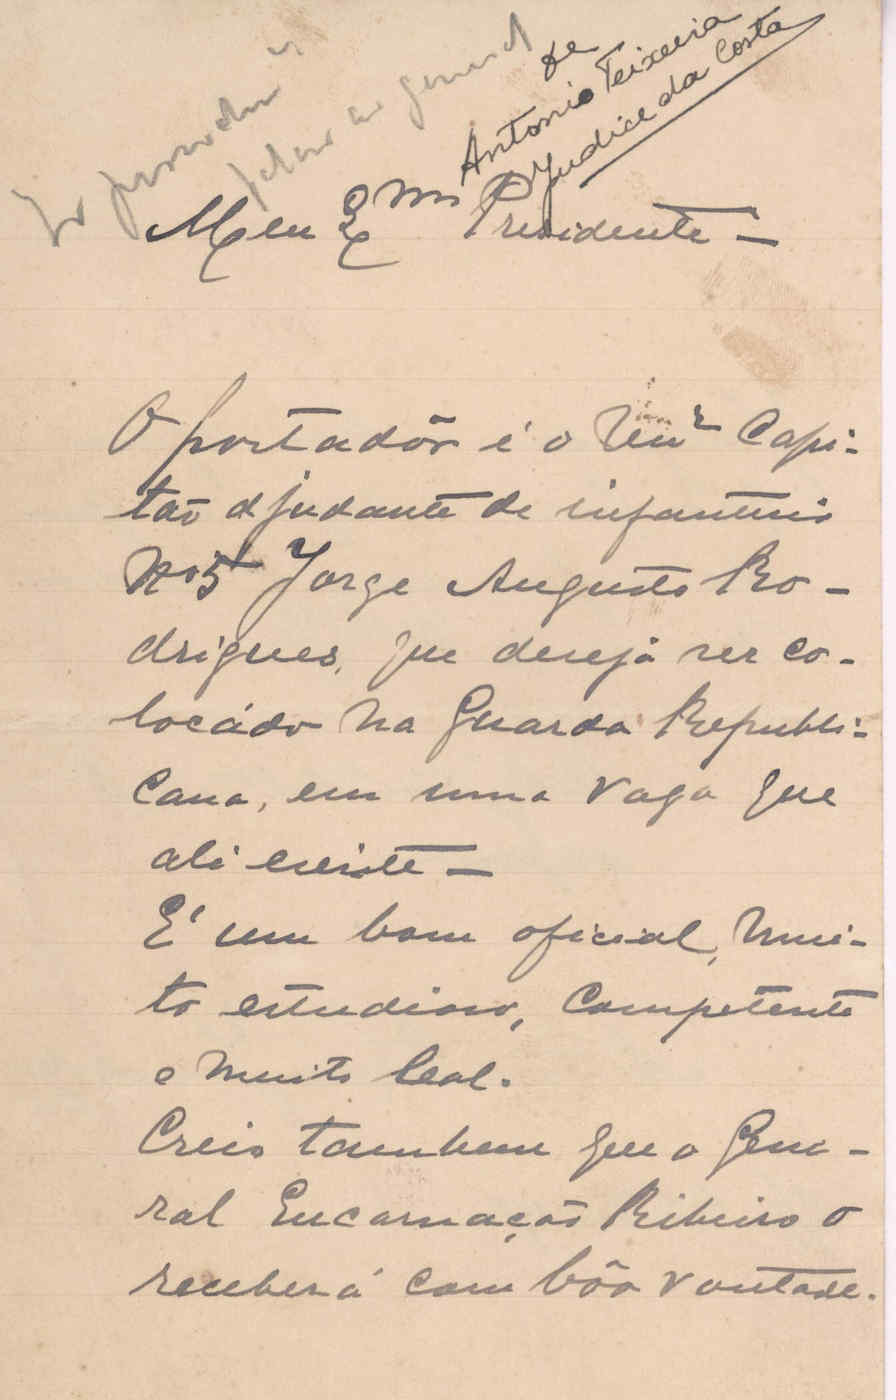 de
Antonio Teixeira
Judice da Costa
falar ao general
Meu Exmo Presidente —
O portadôr é o Tenr Capi-
tão ajudante de infanteria
No 5 Jorge Augusto Ro-
drigues, que deseja ser co-
locádo na Guarda Republi-
cana, em uma vaga que
ali existe —
É um bom oficial, mui-
to estudioso, competente
e muito leal.
Creio tambem que o Gene-
ral Encarnação Ribeiro o
receberá com bôa vontade.